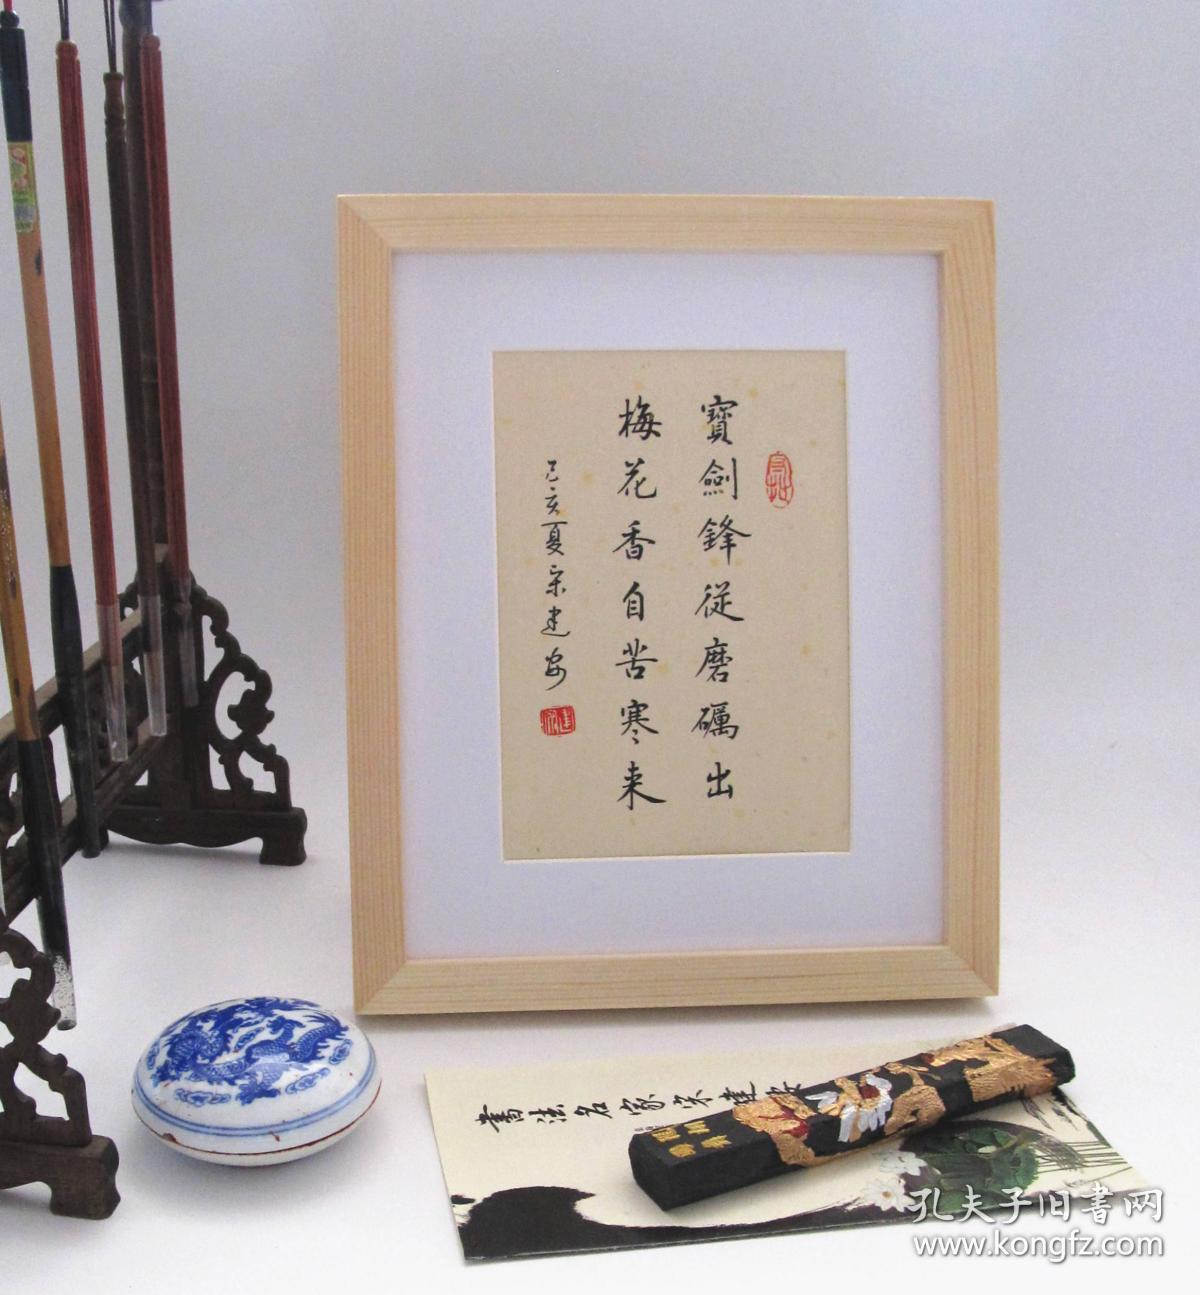 寶劍鋒從磨礪出
梅花香自苦寒来
己亥夏宋建安
書法名家宋建安
孔夫子旧書网
www.kongfz.com